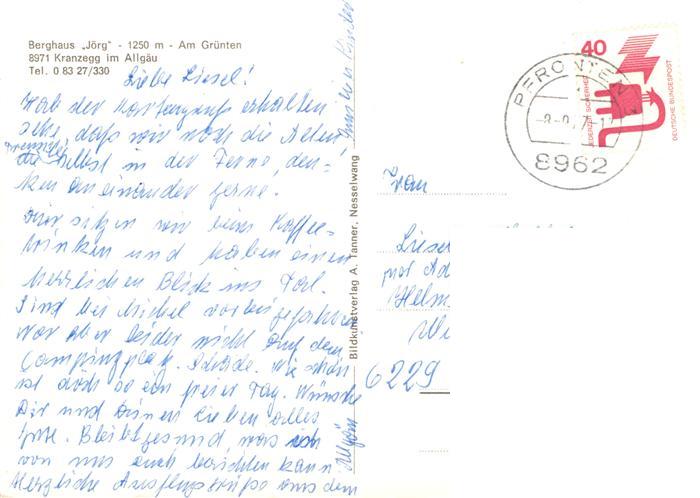 Berghaus „Jörg" - 1250 m - Am Grünten
8971 Kranzegg im Allgäu
Tel. 0 83 27/330
Liebe Liesel!
Hab den Kartengruß erhalten
sehe, daß wir noch die Alten
selbst in der Ferne, den-
ken aneinander gerne.
Hier sitzen wir beim Kaffee-
trinken und haben einen
herrlichen Blick ins Tal.
Sind bei Michel vorbeigefahren
war aber leider nicht auf dem
Campingplatz. Schade. Wie schön
ist doch so ein freier Tag. Wünsche
Dir und Deinen Lieben alles
Gute. Bleibt gesund, was ich
von uns auch berichten kann
Herzliche Ausflugsgrüße aus dem
Allgäu
Bildkunstverlag A. Tanner, Nesselwang
40
JEDERZEIT SICHERHEIT
DEUTSCHE BUNDESPOST
PFRONTEN
8962
Frau
Liesel
Helm
Wi
6229